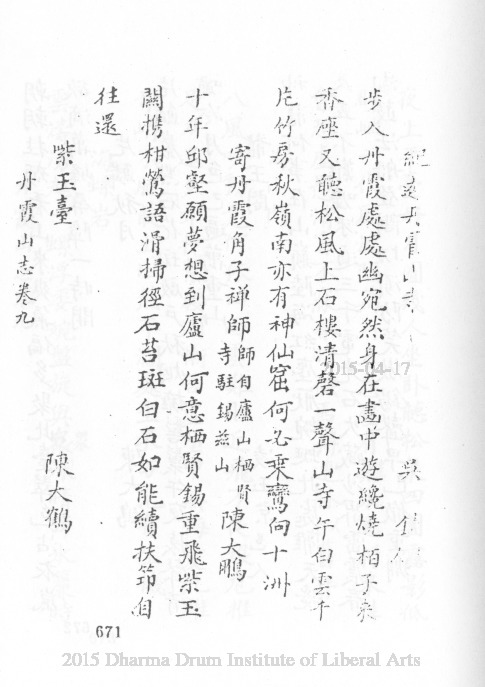 步入丹霞處處幽宛然身在畫中遊纔燒栢子來
齊座又聽松風上石樓清磬一聲山寺午白雲千
片竹房秋嶺南亦有神仙窟何必乘鸞向十洲
寄丹霞角子禅師師自廬山栖賢寺駐錫茲山 陳大鵬
十年邱壑願夢想到廬山何意栖賢錫重飛紫玉
關携柑鶯語滑掃徑石苔斑白石如能續扶筇自
往還
紫玉臺 陳大鶴
丹霞山志卷九
671
2015-04-17
2015 Dharma Drum Institute of Liberal Arts